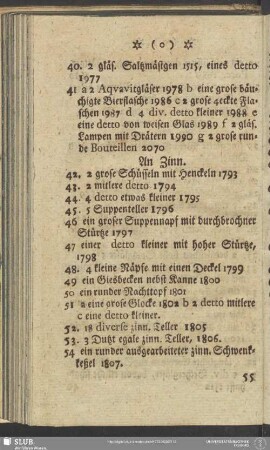 ✠ (o) ✠
40. 2 gläs. Saltzmästgen 1515, eines detto
1977
41 a 2 Aqvavitgläser 1978 b eine grose bäu-
chigte Bierflasche 1986 c 2 grose 4eckte Fla-
schen 1987 d 4 div. detto kleiner 1988 e
eine detto von weisen Glas 1989 f 2 gläs.
Lampen mit Drätern 1990 g 2 grose run-
de Bouteillen 2070
An Zinn.
42. 2 grose Schüsseln mit Henckeln 1793
43. 2 mitlere detto 1794
44. 4 detto etwas kleiner 1795
45. 5 Suppenteller 1796
46 ein groser Suppennapf mit durchbrochner
Stürtze 1797
47 einer detto kleiner mit hoher Stürtze,
1798
48. 4 kleine Näpfe mit einen Deckel 1799
49 ein Giesbecken nebst Kanne 1800
50 ein runder Nachttopf 1801
51 a eine grose Glocke 1802 b 2 detto mitlere
c eine detto kleiner.
52. 18 diverse zinn. Teller 1805
53. 3 Dutzt egale zinn. Teller, 1806.
54 ein runder ausgearbeiteter zinn. Schwenk-
keßel 1807.
55
SLUB